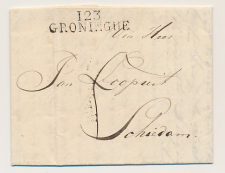 123
GRONINGUE
Den Heer
Jan Loopuit
Schiedam